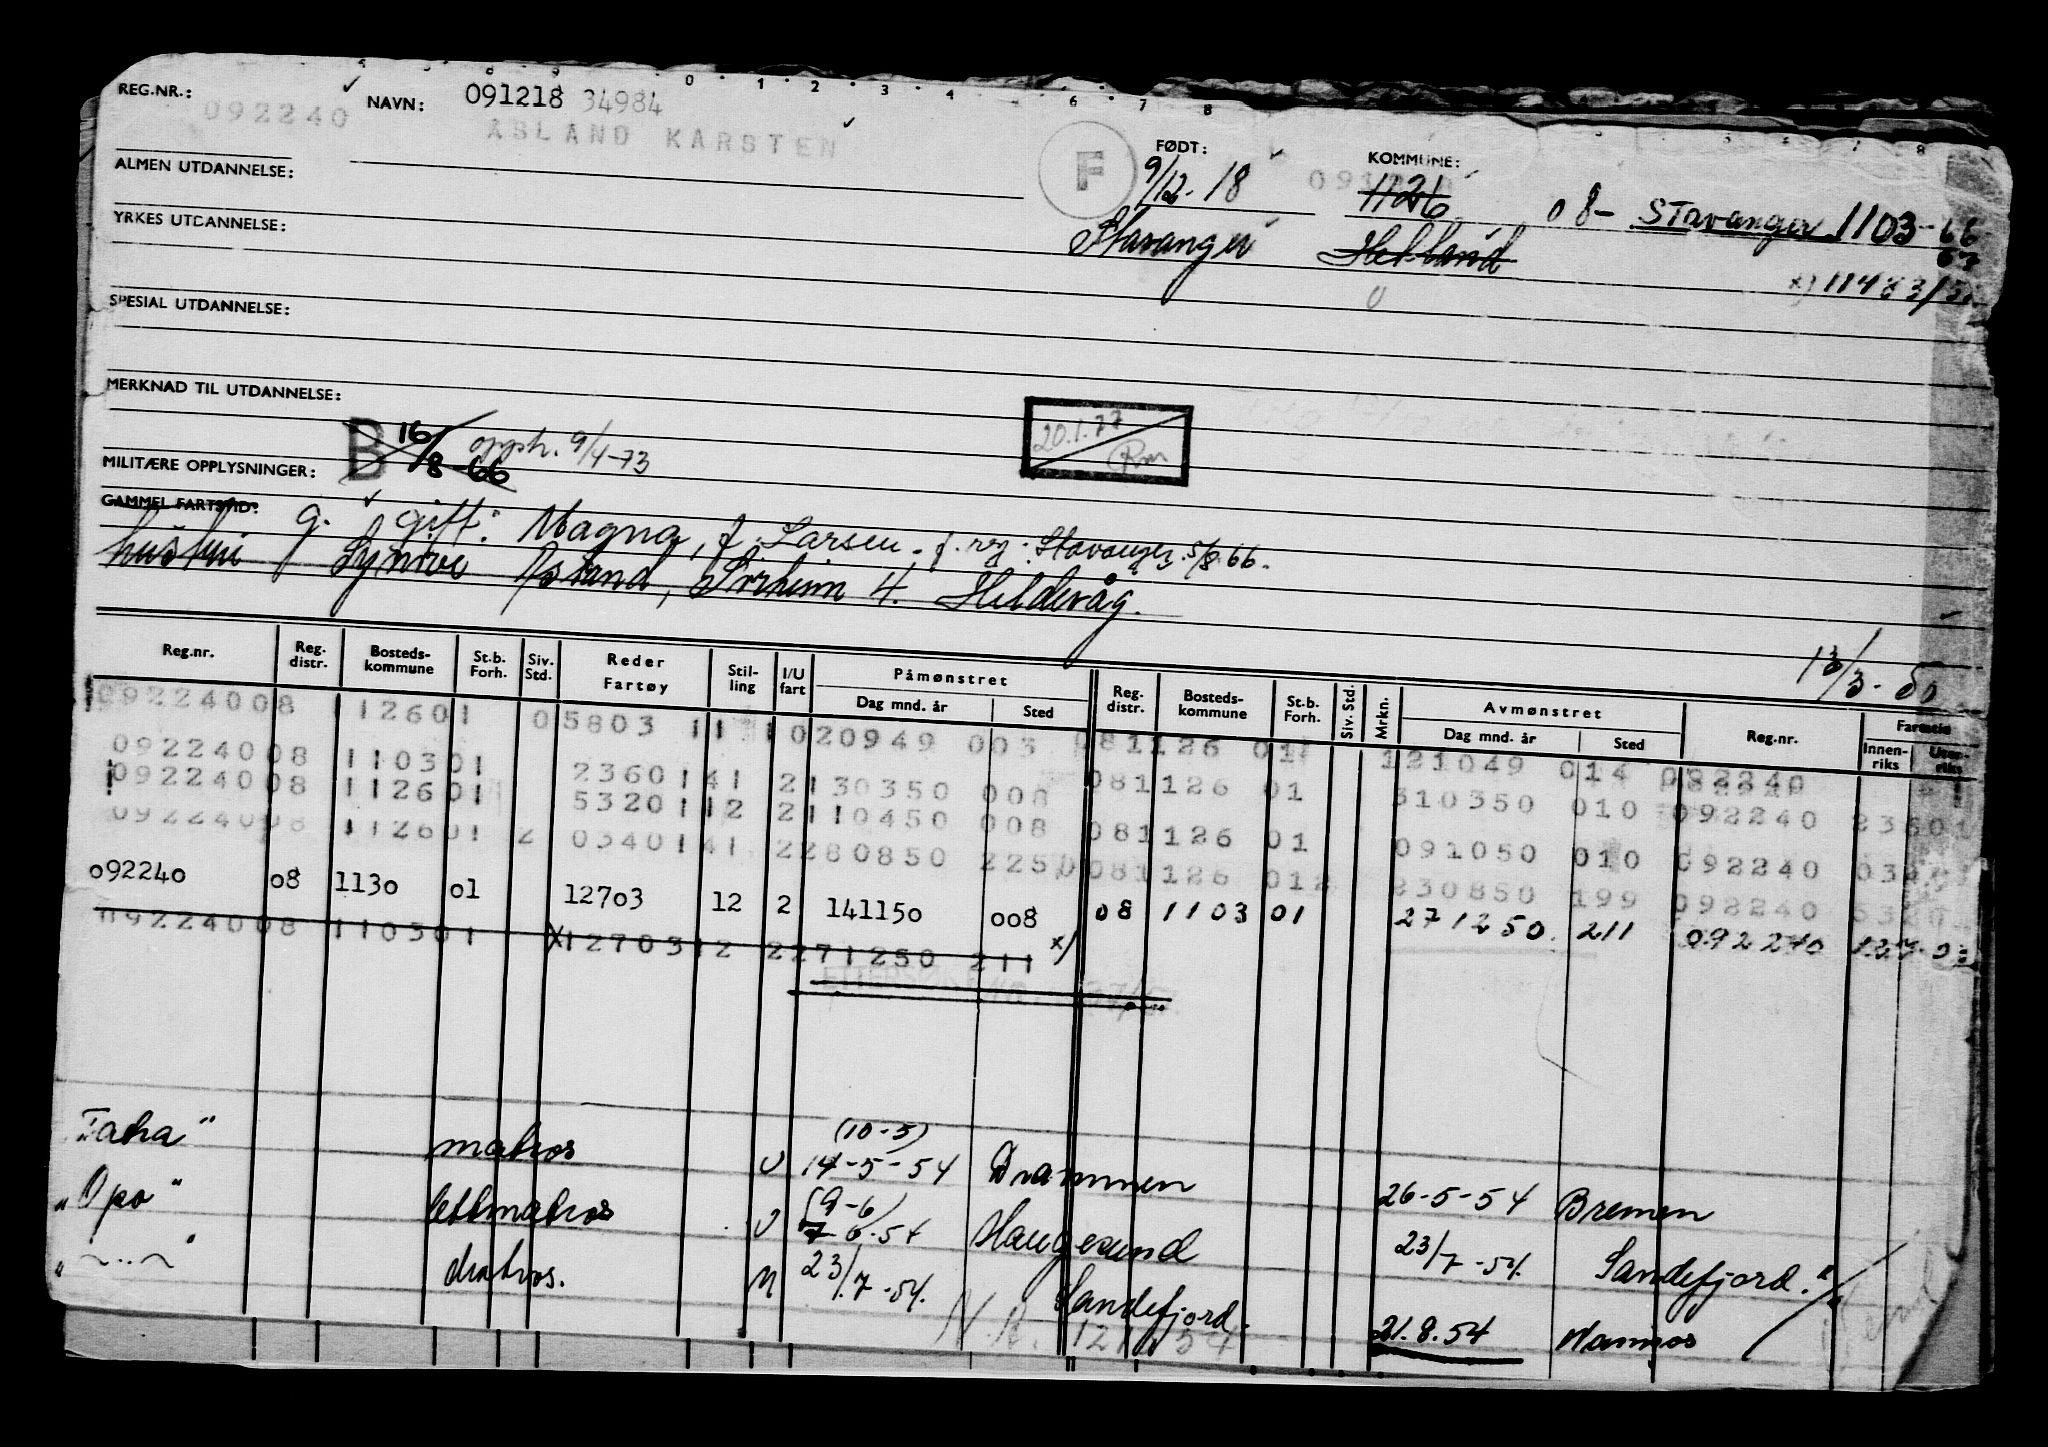 REG.NR.: 092240 NAVN: 091218 34984
ÅSLAND KARSTEN
F FØDT: 9/12-18 KOMMUNE: 1126 08- Stavanger 1103-66
67
ALMEN UTDANNELSE:
Stavanger Hetland
x) 11483/50
YRKES UTDANNELSE:
SPESIAL UTDANNELSE:
MERKNAD TIL UTDANNELSE:
20.1.77
Rm
MILITÆRE OPPLYSNINGER: B 16/8-66 opph. 9/4-73
GAMMEL FARTSTID: g. gift: Magna, f. Larsen. f. reg. Stavanger 5/8.66.
hustru Synove Åsland, Hildevåg.
13/3-50
Reg.nr. Reg. distr. Bosteds-kommune St.b. Forh. Siv. Std. Reder Fartøy Stil-ling I/U fart Påmønstret Reg. distr. Bosteds-kommune St.b. Forh. Siv. Std. Mrkn. Avmønstret Reg.nr. Fartstid
Dag mnd. år Sted Dag mnd. år Sted Innen-riks Uten-riks
09224008 112601 05803 11 1 020949 003 081126 01 121049 014 092240
09224008 110301 23601 41 2 130350 008 081126 01 310350 010 092240 23601
09224008 112601 53201 12 2 110450 008 081126 01 091050 010 092240
09224008 112601 2 03401 41 2 280850 2250 081126 012 230850 199 092240 5320
092240 08 1130 01 12703 12 2 141150 008 08 1103 01 271250 211 092240 127.03
09224008 110301 x12703 12 2 271250 211 x)
"Fatra" matros U (10-5) 14-5-54 Drammen 26-5-54 Bremen
"Opo" lettmatros U (9-6) 7-6-54 Haugesund 23/7-54. Sandefjord.
" ~..~ " matros. U 23/7-54. Sandefjord. 21.8.54